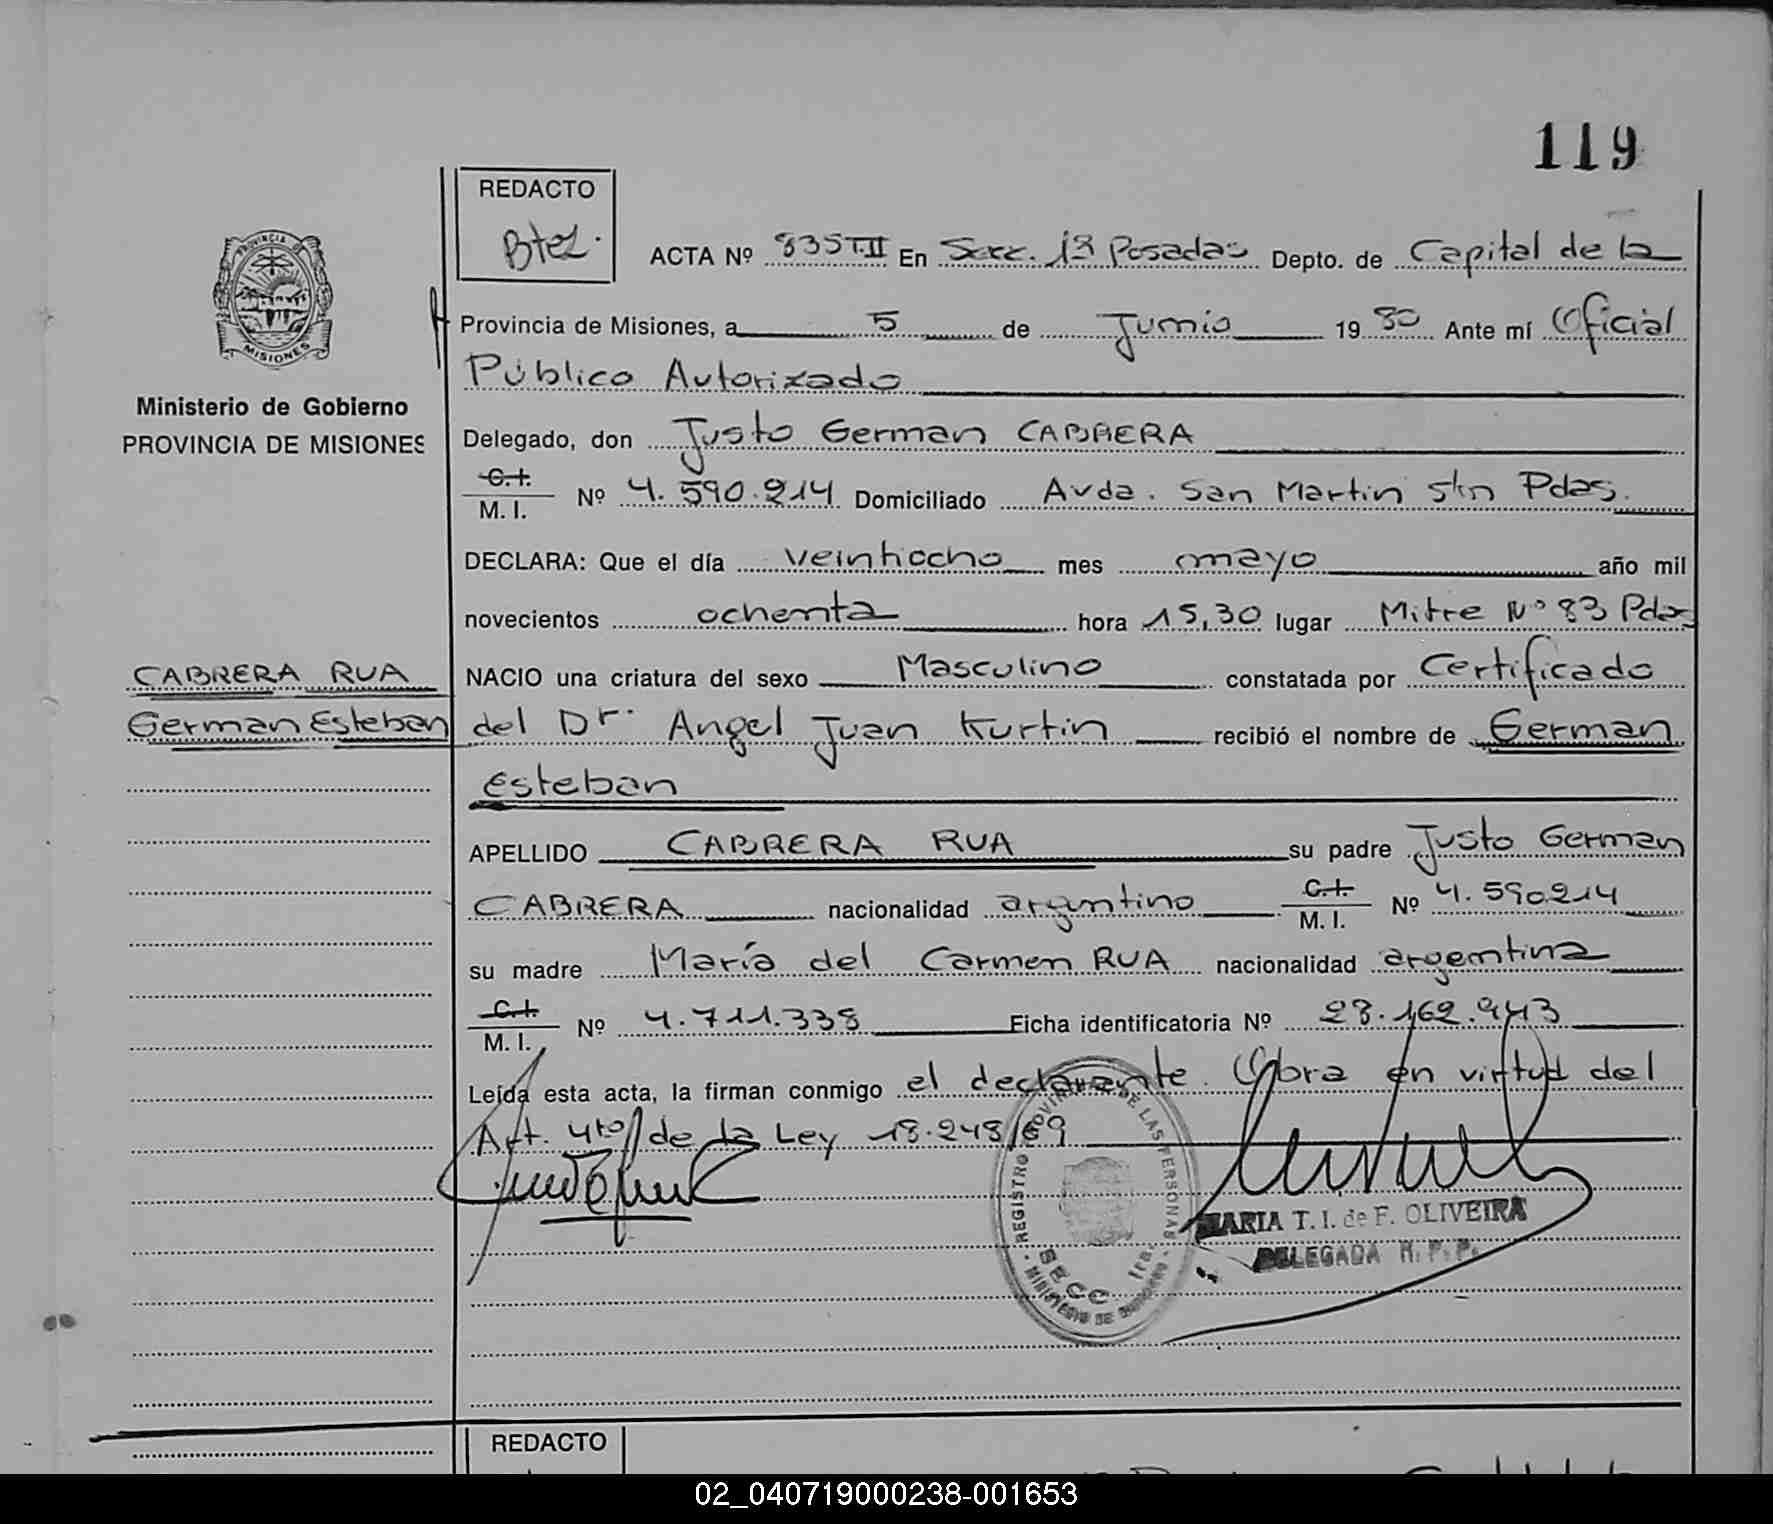 119
REDACTO
Btez.
ACTA Nº 835 T.II En Secc. 1ª Posadas Depto. de Capital de la
Provincia de Misiones, a 5 de Junio 1980 Ante mí Oficial
Público Autorizado
PROVINCIA DE
MISIONES
Ministerio de Gobierno
PROVINCIA DE MISIONES
Delegado, don Justo German CABRERA
C.I.
M. I. Nº 4.590.214 Domiciliado Avda. San Martin s/n Pdas.
DECLARA: Que el día veintiocho mes mayo año mil
novecientos ochenta hora 15,30 lugar Mitre Nº 83 Pdas
NACIO una criatura del sexo Masculino constatada por Certificado
CABRERA RUA
German Esteban
del Dr. Angel Juan Kurtin recibió el nombre de German
Esteban
APELLIDO CABRERA RUA su padre Justo German
CABRERA nacionalidad argentino C.I.
M. I. Nº 4.590214
su madre María del Carmen RUA nacionalidad argentina
C.I.
M. I. Nº 4.711.338 Ficha identificatoria Nº 28.162.943
Leída esta acta, la firman conmigo el declarante. Obra en virtud del
Art. 4to de la Ley 18.248/69
REGISTRO PROVINCIAL DE LAS PERSONAS
SECC 1ra.
MINISTERIO DE GOBIERNO
MARIA T. I. de F. OLIVEIRA
DELEGADA R. P. P.
REDACTO
02_040719000238-001653